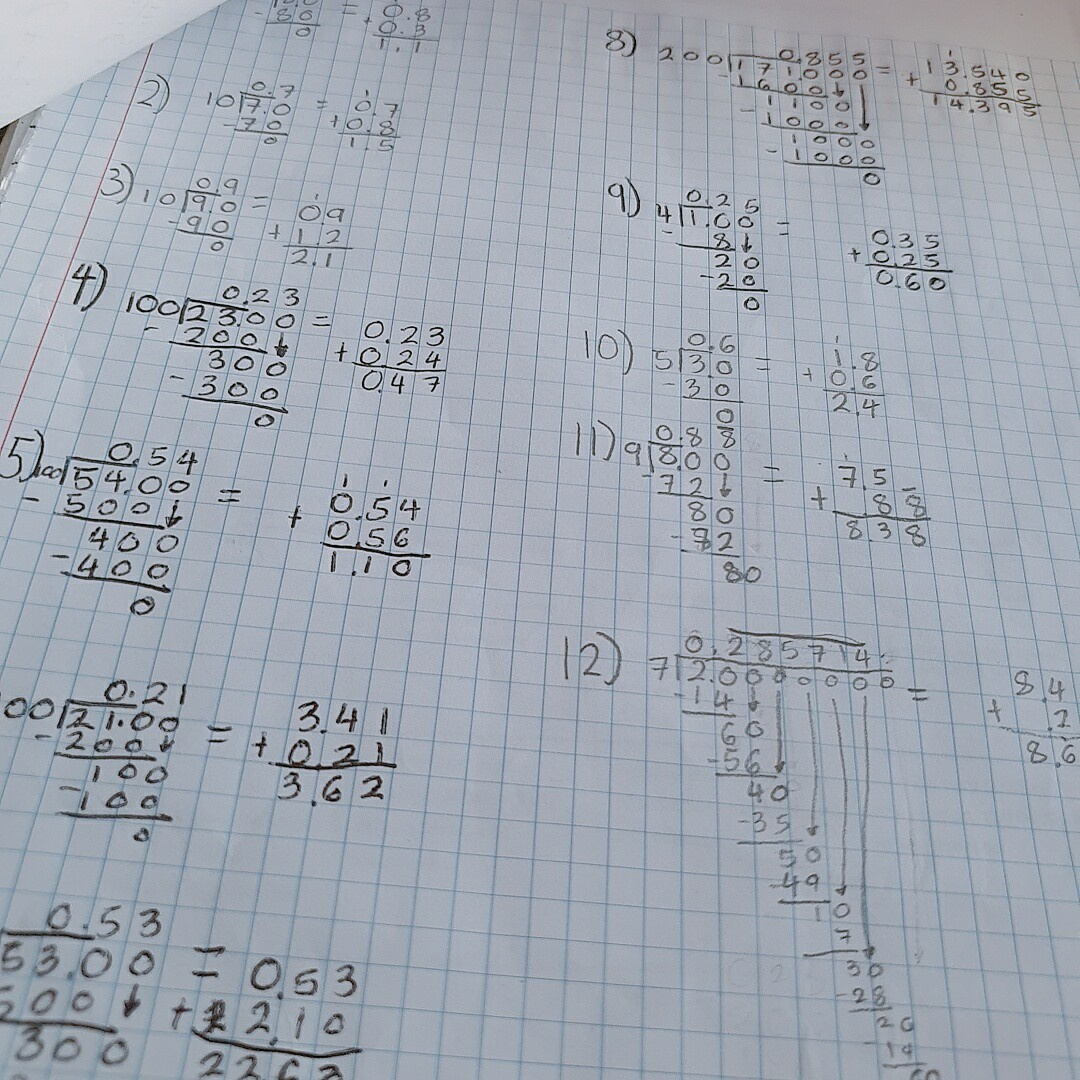 8 0 = 0.8
0 + 0.3
1.1
2) 0.7
10 7.0 = 0.7
-70 +0.8
0 1.5
3) 0.9
10 90 = 1
-90 09
0 +1.2
2.1
4) 0.23
100 23.00 = 0.23
- 200 + 0.24
300 0.47
- 300
0
5) 0.54
100 54.00 = 1 1
- 500 0.54
400 + 0.56
-400 1.10
0
0.21
00 21.00 = 3.41
-200 + 0.21
100 3.62
-100
0
0.53
53.00 = 0.53
500 + 2.10
300
8) 0.855 1
200 171000 = 13.540
- 1600 + 0.855
- 1100 14.395
1000
1000
- 1000
0
9) 0.25
4 1.00 =
- 8 0.35
20 + 0.25
-20 0.60
0
10) 0.6 1
5 30 = 1.8
-30 + 0.6
0 2.4
11) 0.88 1
9 8.00 = 7.5
-72 + 88
80 838
- 2
80
12) 0.285714
7 2.0000000 = 8.4
-14 + .2
60 8.6
-56
40
-35
50
-49
10
7
30
-28
20
-14